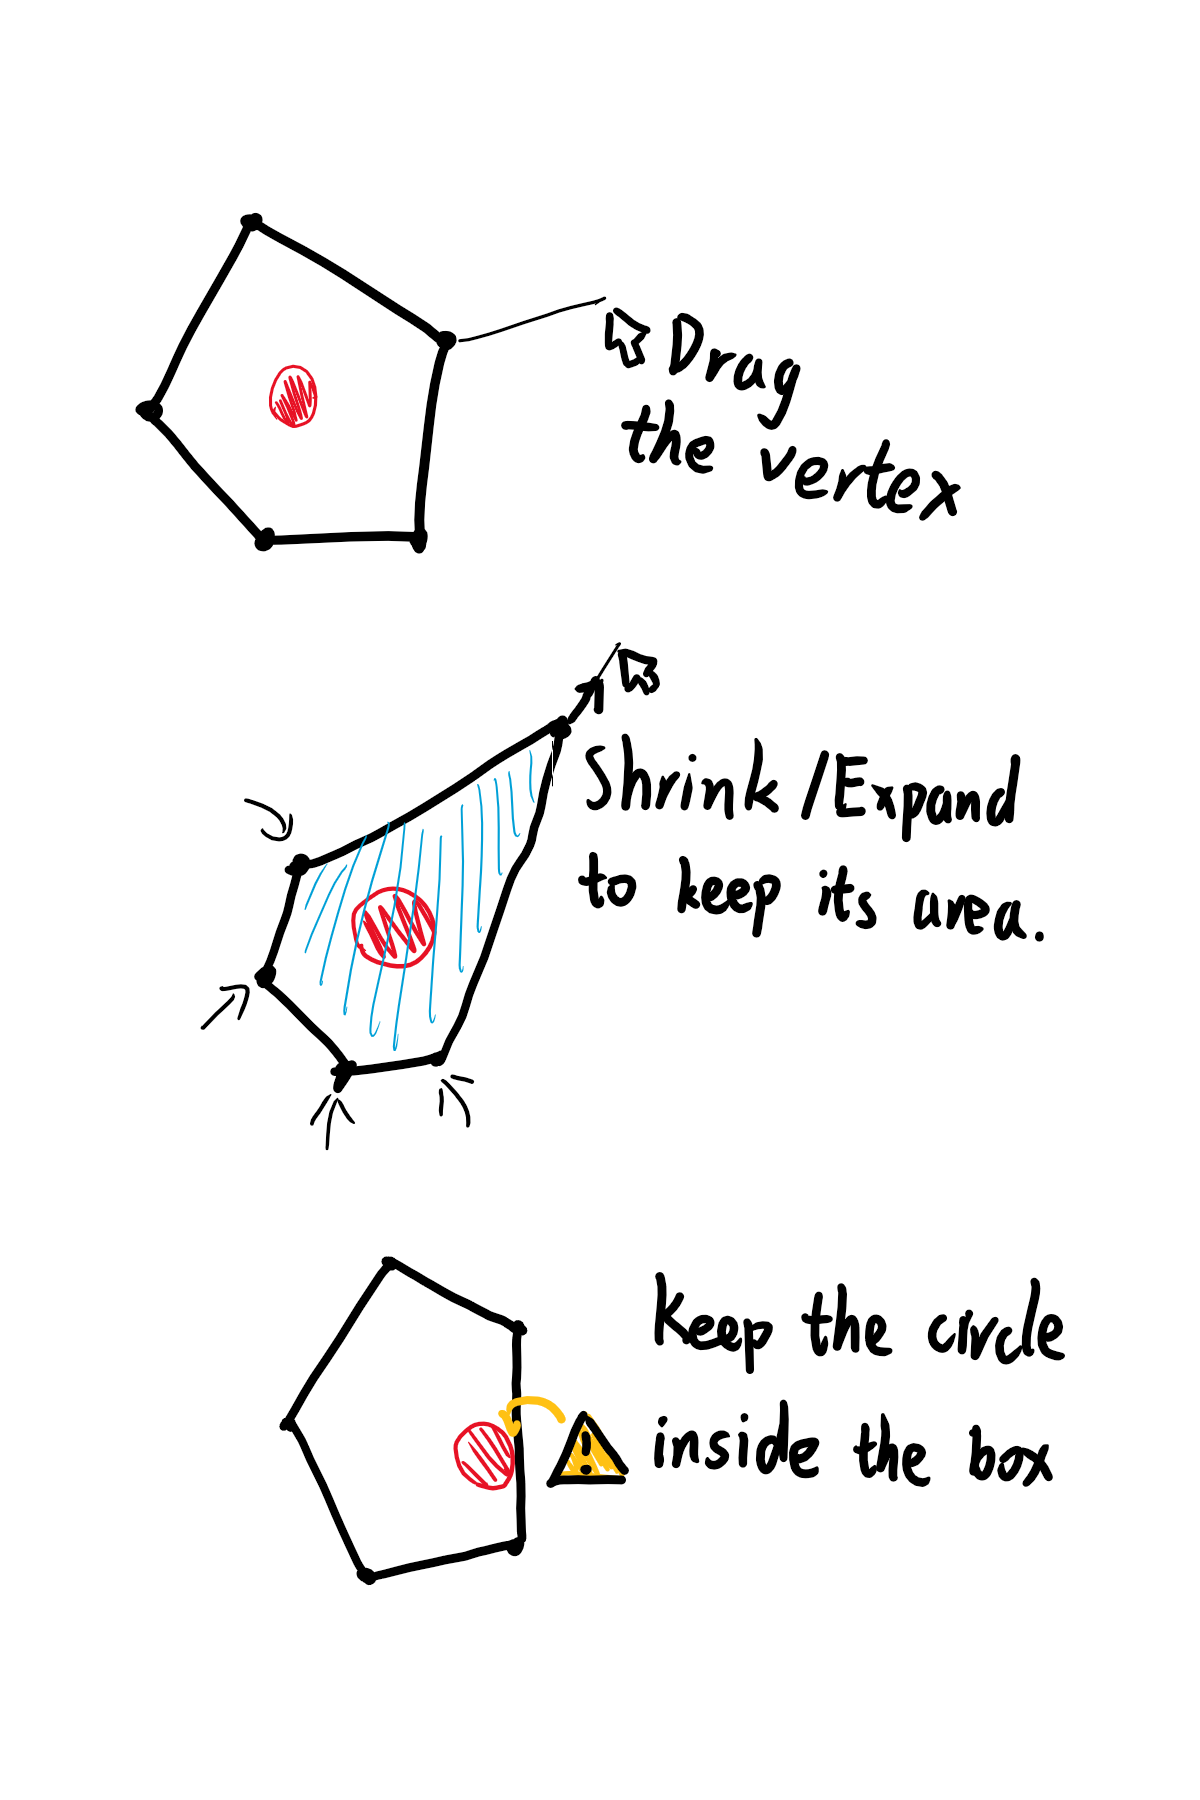 Drag
the vertex
Shrink/Expand
to keep its area.
Keep the circle
!
inside the box